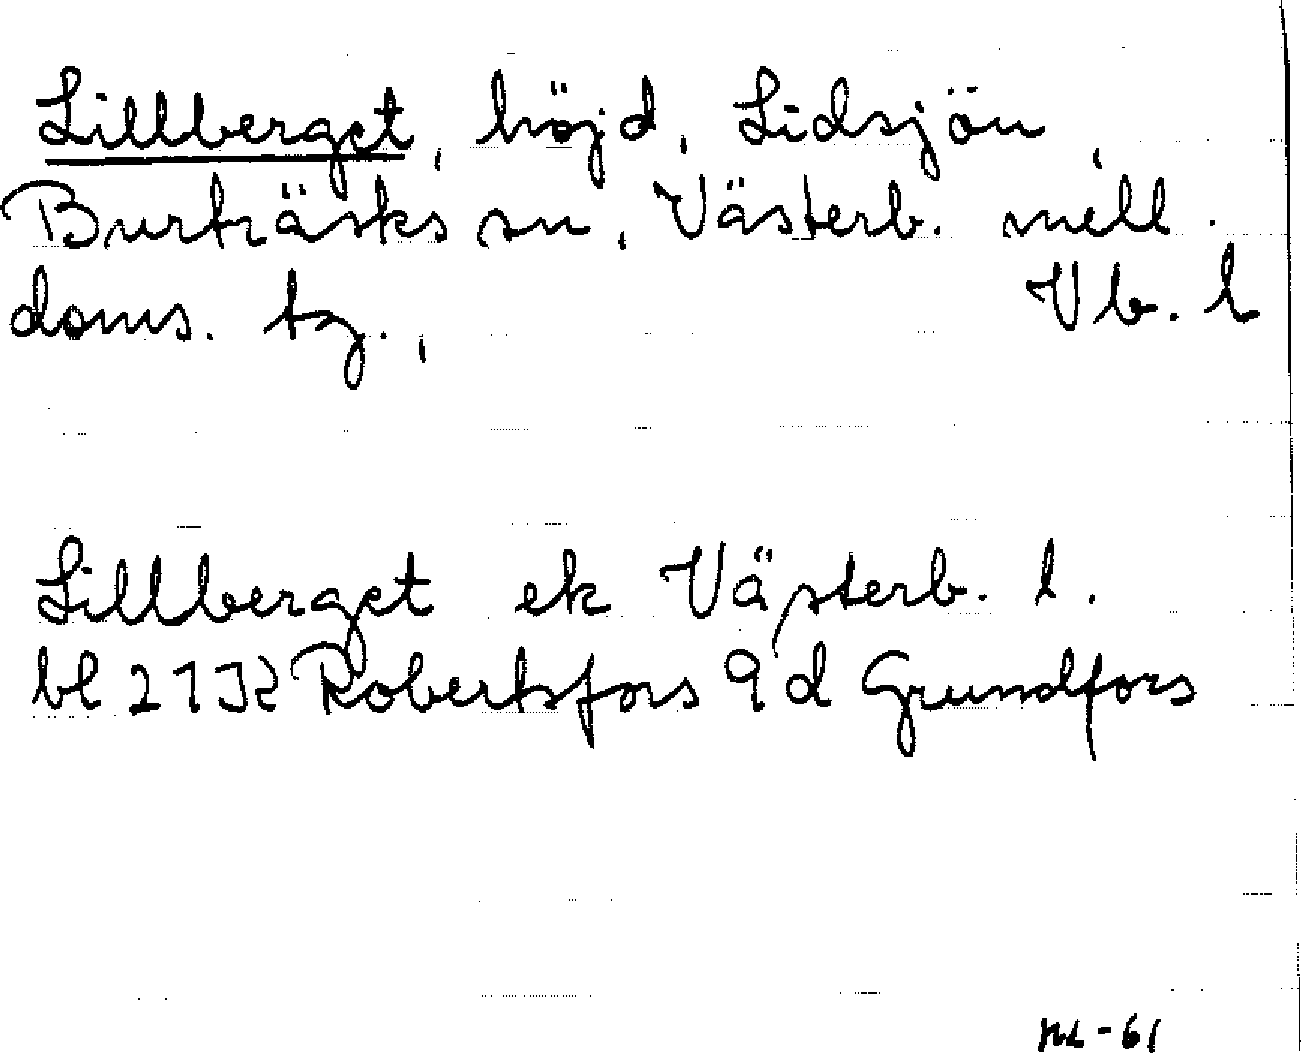 Lillberget, höjd, Lidsjön,
Burträsks sn, Västerb. mell.
doms. tg., Vb. l
Lillberget ek Västerb. l.
bl 21 K Robertsfors 9 d Grundfors
-61